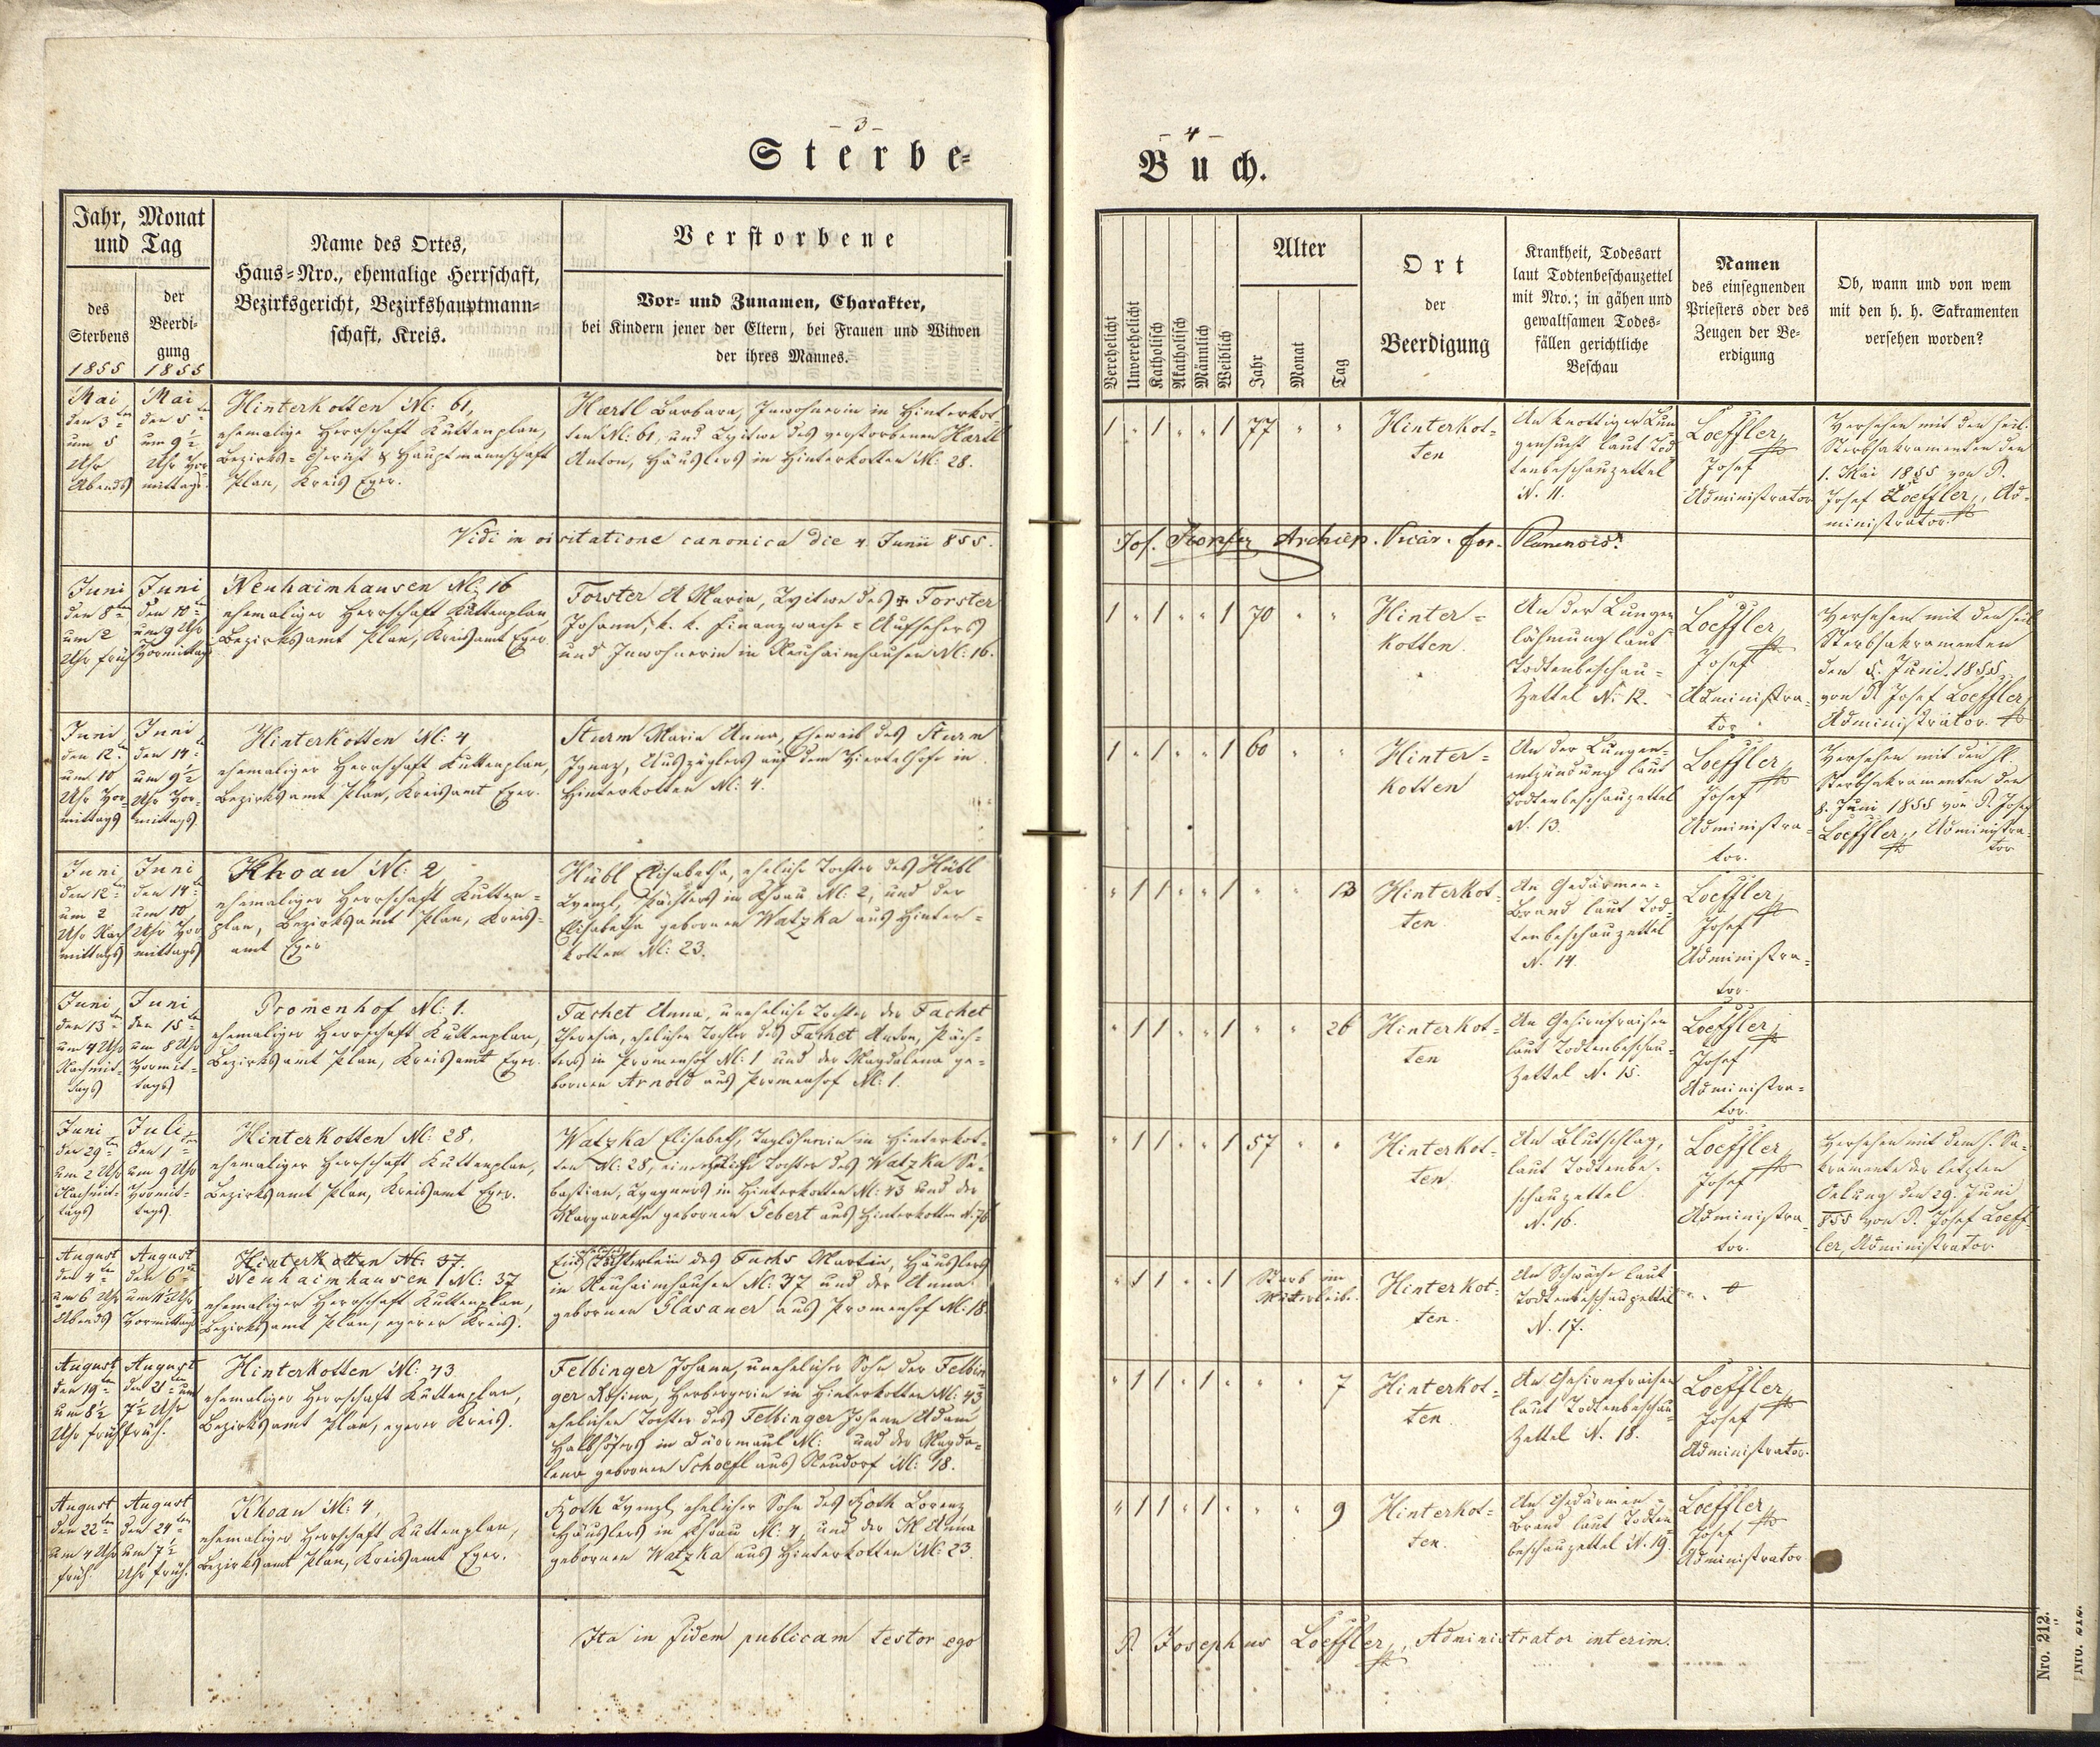 - 3 -
Sterbe-
Jahr, Monat
und Tag
des
Sterbens
1855
der
Beerdi-
gung
1855
Name des Ortes,
Haus-Nro., ehemalige Herrschaft,
Bezirksgericht, Bezirkshauptmann-
schaft, Kreis.
Verstorbene
Vor- und Zunamen, Charakter,
bei Kindern jener der Eltern, bei Frauen und Witwen
der ihres Mannes.
Mai
den 3ten
um 5
Uhr
Abends
Mai
den 5ten
um 9½
Uhr Vor-
mittags.
Hinterkotten N: 61,
ehemalige Herrschaft Kuttenplan,
Bezirks-Gericht & Hauptmannschaft
Plan, Kreis Eger.
Hærtl Barbara, Inwohnerin in Hinterkot-
ten N: 61, und Witwe des verstorbenen Hærtl
Anton, Häuslers in Hinterkotten N: 28.
Vidi in visitatione canonica die 4. Junii 855.
Juni
den 8ten
um 2
Uhr früh
Juni
den 10ten
um 9 Uhr
Vormittag
Neuhaimhausen N: 16
ehemaliger Herrschaft Kuttenplan,
Bezirksamt Plan, Kreisamt Eger.
Forster A Maria, Witwe des + Forster
Johann, k. k. Finanzwache-Aufsehers
und Inwohnerin in Neuhaimhausen N: 16.
Juni
den 12ten
um 10
Uhr Vor-
mittags
Juni
den 14ten
um 9½
Uhr Vor-
mittags.
Hinterkotten N: 4
ehemaliger Herrschaft Kuttenplan,
Bezirksamt Plan, Kreisamt Eger.
Sturm Maria Anna, Eheweib des Sturm
Ignaz, Auszüglers auf dem Viertelhofe in
Hinterkotten N: 4.
Juni
den 12ten
um 2
Uhr Nach
mittags
Juni
den 14ten
um 10
Uhr Vor-
mittags
Khoau N: 2
ehemaliger Herrschaft Kutten-
plan, Bezirksamt Plan, Kreis-
amt Eger
Hübl Elisabetha, eheliche Tochter des Hübl
Wenzl, Pächters in Khoau N: 2, und der
Elisabetha gebornen Watzka aus Hinter-
kotten N: 23.
Juni
den 13ten
um 4 Uhr
Nachmit-
tags
Juni
den 15ten
um 8 Uhr
Vormit-
tags
Promenhof N: 1.
ehemaliger Herrschaft Kuttenplan,
Bezirksamt Plan, Kreisamt Eger.
Fachet Anna, uneheliche Tochter der Fachet
Theresia, ehelicher Tochter des Fachet Anton, Päch-
ters in Promenhof N: 1 und der Magdalena ge-
bornen Arnold aus Promenhof N: 1.
Juni
den 29ten
um 2 Uhr
Nachmit-
tags
Juli
den 1ten
um 9 Uhr
Vormit-
tags.
Hinterkotten N: 28,
ehemaliger Herrschaft Kuttenplan,
Bezirksamt Plan, Kreisamt Eger.
Watzka Elisabeth, Taglöhnerin in Hinterkot-
ten N: 28, eine eheliche Tochter des Watzka Se-
bastian, Wagners in Hinterkotten N: 43 und der
Margaretha gebornen Gebert aus Hinterkotten N. 76
August
den 4ten
um 6 Uhr
Abends
August
den 6ten
um 11½ Uhr
Vormittags
Hinterkotten N: 37.
Neuhaimhausen N: 37
ehemaliger Herrschaft Kuttenplan,
Bezirksamt Plan, egerer Kreis.
Töchterlein des Fuchs Martin, Häuslers
in Neuhaimhausen N: 37 und der Anna
gebornen Glasauer aus Promenhof N: 18.
August
den 19ten
um 8½
Uhr früh
August
den 21ten um
7½ Uhr
früh.
Hinterkotten N: 43
ehemaliger Herrschaft Kuttenplan,
Bezirksamt Plan, egerer Kreis.
Felbinger Johann, unehelicher Sohn der Felbin
ger Rosina, Herbergerin in Hinterkotten N: 43
ehelicher Tochter des Felbinger Johann Adam
Halbhöfers in Dürrmaul N: und der Magda-
lena gebornen Schoeffl aus Neudorf N: 18.
August
den 22ten
um 4 Uhr
früh.
August
den 24ten
um 7½
Uhr früh.
Khoau N: 4,
ehemaliger Herrschaft Kuttenplan,
Bezirksamt Plan, Kreisamt Eger.
Roth Wenzl, ehelicher Sohn des Roth Lorenz,
Häuslers in Khoau N: 4, und der M Anna
gebornen Watzka aus Hinterkotten N: 23.
Ita in fidem publicam testor ego
- 4 -
Buch.
Verehelicht
Unverehelicht
Katholisch
Akatholisch
Männlich
Weiblich
Alter
Jahr
Monat
Tag
Ort
der
Beerdigung
Krankheit, Todesart
laut Todtenbeschauzettel
mit Nro.; in gähen und
gewaltsamen Todes-
fällen gerichtliche
Beschau
Namen
des einsegnenden
Priesters oder des
Zeugen der Be-
erdigung
Ob, wann und von wem
mit den h. h. Sakramenten
versehen worden?
1 " 1 " " 1 77 " "
Hinterkot-
ten
An knottiger Lun
gensucht laut Tod
tenbeschauzettel
N. 11.
Loeffler
Josef
Administrator
Versehen mit den heil.
Sterbsakramenten den
1. Mai 1855 von P.
Josef Loeffler, Ad-
ministrator
Jos. Archiep. Vicar. for. Planensis.
1 " 1 " " 1 70 " "
Hinter-
kotten.
An der Lungen
lähmung laut
Todtenbeschau-
zettel N. 12.
Loeffler
Josef
Administra-
tor
Versehen mit den heil
Sterbsakramenten
den 5. Juni 1855
von P. Josef Loeffler,
Administrator
1 " 1 " " 1 60 " "
Hinter-
kotten
An der Lungen-
entzündung laut
Todtenbeschauzettel
N. 13.
Loeffler
Josef
Administra-
tor.
Versehen mit den hl.
Sterbsakramenten den
8. Juni 1855 von P. Josef
Loeffler, Administra-
tor
" 1 1 " " 1 " " 13
Hinterkot-
ten.
An Gedärmen-
Brand laut Tod-
tenbeschauzettel
N. 14.
Loeffler
Josef
Administra-
tor.
" 1 1 " " 1 " " 26
Hinterkot-
ten
An Gehirnfraisen
laut Todtenbeschau-
zettel N. 15.
Loeffler
Josef
Administra-
tor.
" 1 1 " " 1 57 " "
Hinterkot-
ten
An Blutschlag,
laut Todtenbe-
schauzettel
N. 16.
Loeffler
Josef
Administra-
tor.
Versehen mit dem h. Sa-
kramente der letzten
Oelung den 29. Juni
855 von P. Josef Loeff-
ler, Administrator
" 1 1 " " 1 Starb im
Mutterleibe.
Hinterkot-
ten.
An Schwäche laut
Todtenbeschauzettel
N. 17.
" 1 1 " 1 " " " 7
Hinterkot-
ten
An Gehirnfraisen
laut Todtenbeschau-
zettel N. 18.
Loeffler
Josef
Administrator.
" 1 1 " 1 " " " 9
Hinterkot-
ten.
An Gedärmen-
Brand laut Todten-
beschauzettel N. 19.
Loeffler
Josef
Administrator
P. Josephus Loeffler, Administrator interim.
Nro. 212.